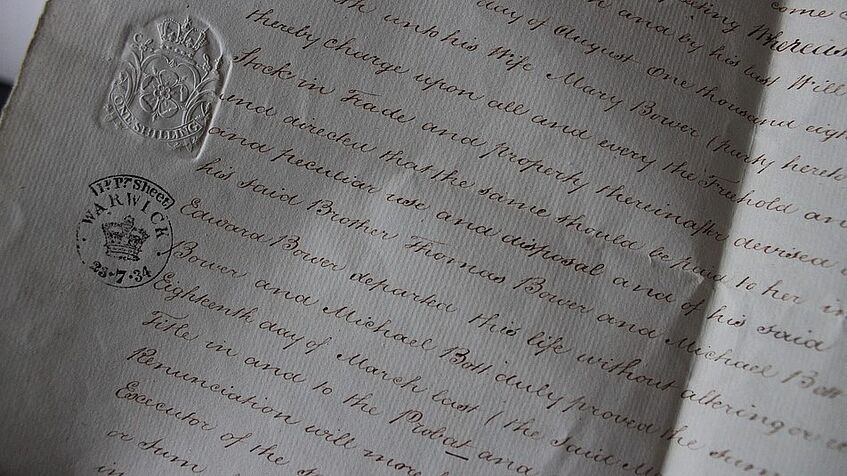 come
Whereas
and by his last Will
day of August One thousand eigh
unto his Wife Mary Bower (party hereto
thereby charge upon all and every the Freehold an
Stock in Trade and property thereinafter devised
and directed that the same should be paid to her in
and peculiar use and disposal and of his said
his said Brother Thomas Bower and Michael Bott
Edward Bower departed this life without altering or
Bower and Michael Bott duly proved the sum
Eighteenth day of March last (the said
Title in and to the Probat and
Renunciation will more
Executor of the s
or sum
in
ONE SHILLING
Sheet
WARWICK
7.34